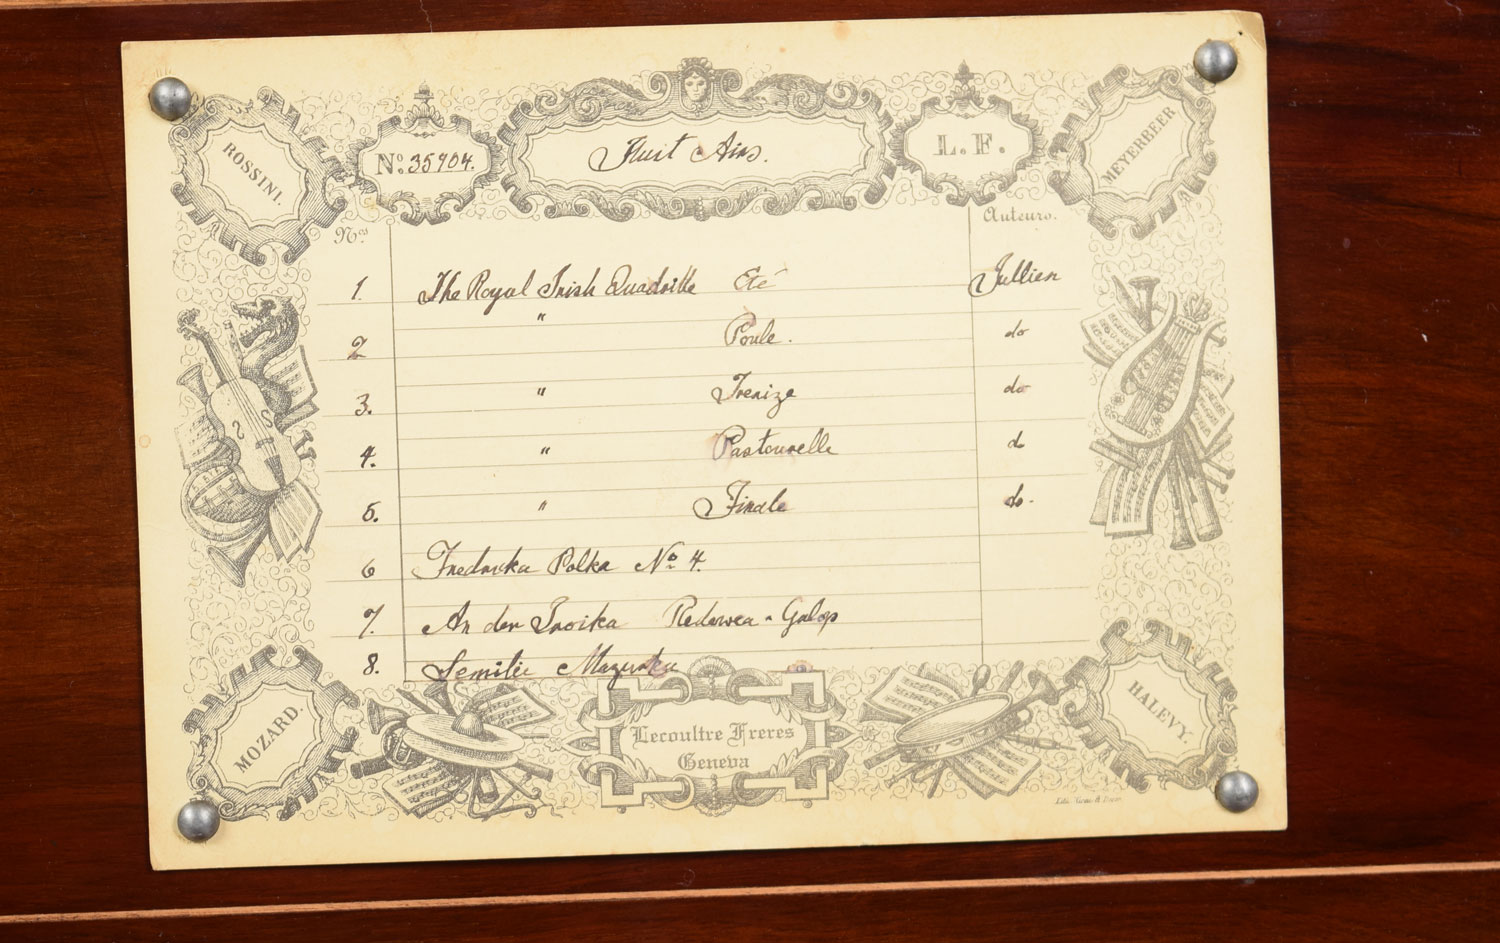 ROSSINI.
No. 35904.
Huit Airs.
L. F.
MEYERBEER
Nos
Auteurs.
1. The Royal Irish Quadrille Eté Jullien
2 " Poule. do
3. " Trenize do
4. " Pastourelle d
5. " Finale do.
6 Fredricka Polka No 4.
7. An der Troika Redowa - Galop
8. Mazurka
MOZARD.
Lecoultre Freres
Geneva
HALEVY.